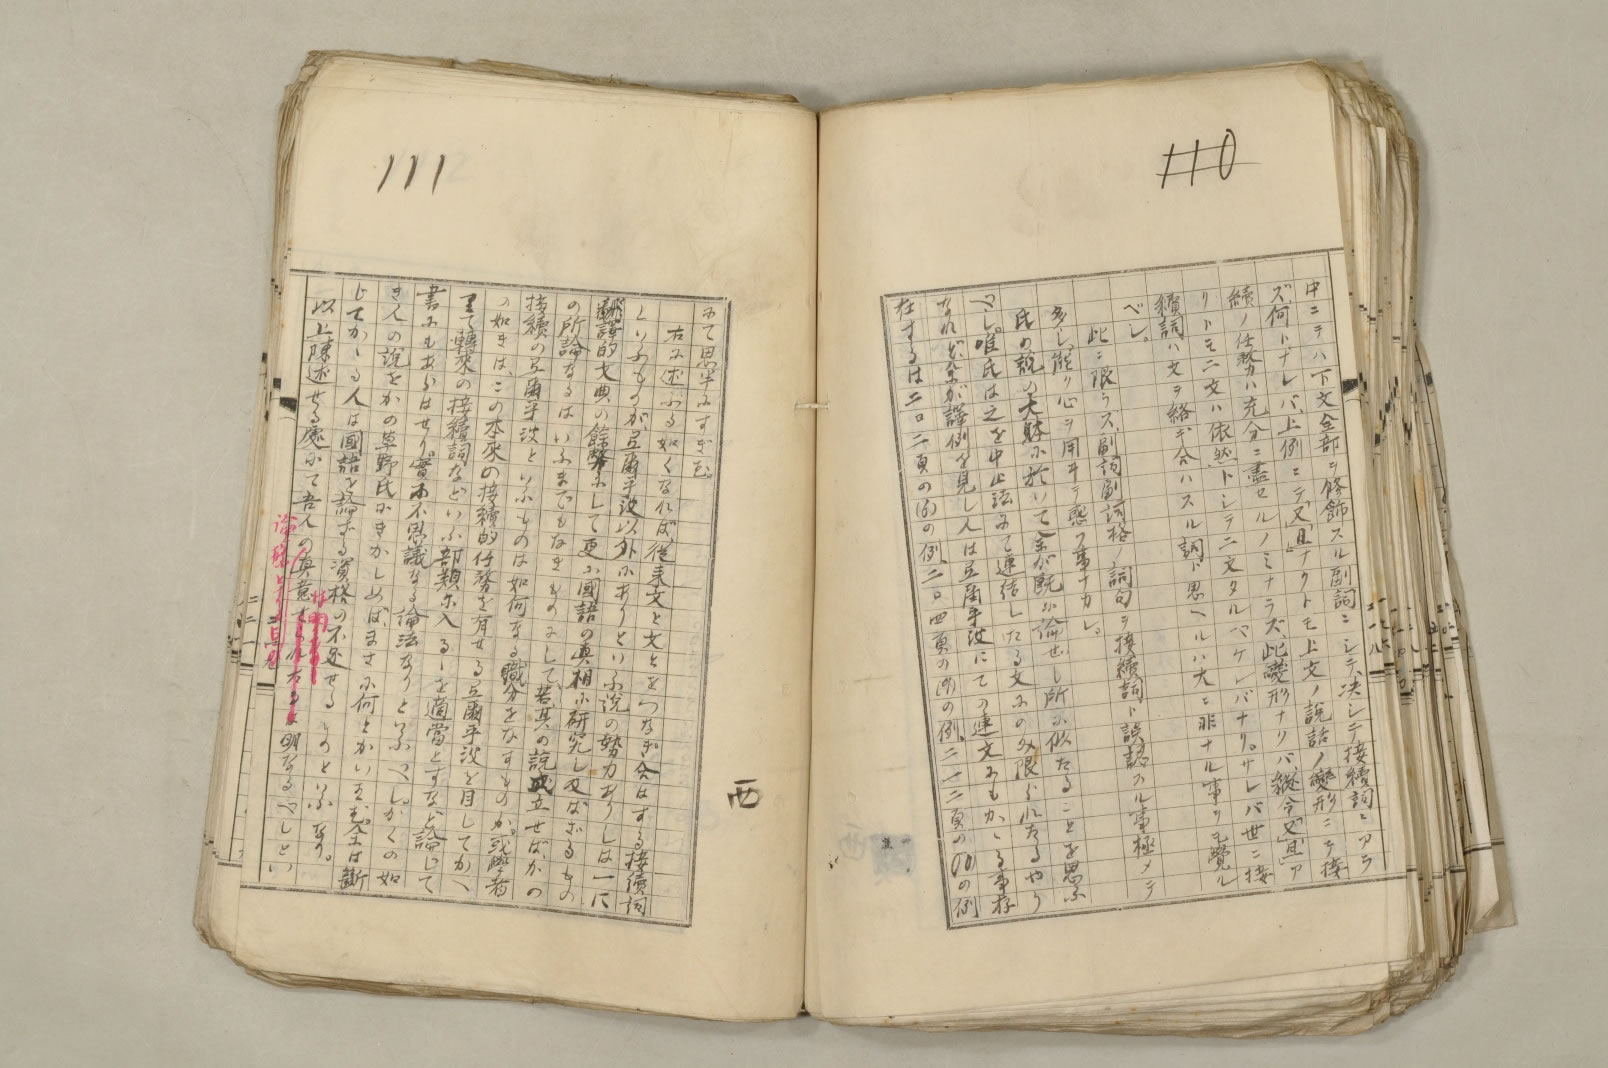 110
中ニテハ下文全部ヲ修飾スル副詞ニシテ、決シテ接續詞ニアラ
ズ。何トナレバ、上例ニテ「又」「且」ナクトモ上文ノ說話ノ變形ニテ接
續ノ任務ハ充分ニ盡セルノミナラズ、此變形ナリバ、縱令「又」「且」ア
リトモ二文ハ依然トシテ二文タルベケレバナリ。サレバ世ニ接
續詞ハ文ヲ絡ギ合ハスル詞ト思ヘルハ大ニ非ナル事ヲモ覺ル
ベシ。
此ニ限ラズ、副詞副詞格ノ詞句ヲ接續詞ト誤認スル事極メテ
多シ、能ク心ヲ用ヰテ惑フ事ナカレ。
氏の說の大躰に於いて余が既に論ぜし所に似たることを思ふ
べし。唯氏は之を中止法にて連結したる文にのみ限られたるやう
なれど、余が譯例を見し人は弖爾乎波にての連文にもかゝる事存
在するは二〇二頁の(6)の例、二〇四頁の(9)の例、二一二頁の(10)の例
111
にて思半にすぎむ。
右に述ぶる如くなれば、從来文と文とをつなぎ合はする接續詞
といふものが、弖爾乎波以外にありといふ說の勢力ありしは一に
飜譯的文典の餘弊にして更に國語の眞相に研究し及ばざるもの
の所論なるはいふまでもなきものにして、若其の說成立せばかの
接續の弖爾乎波といふものは如何なる職分をなすものか。或學者
の如きは、この本來の接續的任務を有せる弖爾乎波を目してかへ
りて轉來の接續詞などいふ部類に入るゝを適當とすなど論じて
書にもあらはせり。實に不思議なる論法なりといふべし。かくの如
き人の說をかの草野氏にきかしめば、まさに何とかいはむ。余は斷
じてかゝる人は國語を論ずる資格の不足せるものといふなり。
以上陳述せる處にて吾人の眞意
明なるべしとい
西